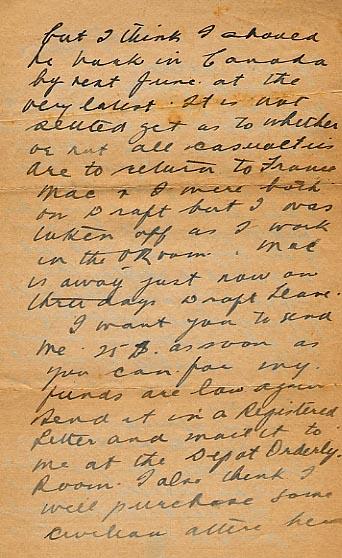 but I think I should
be back in Canada
by next June. at the
very latest. It is not
settled yet as to whether
or not all casualties
are to return to France
Mac & I were both
on Draft but I was
taken off as I work
in the O Room. Mac
is away just now on
three days Draft Leave.
I want you to send
me 25 $. as soon as
you can for my
funds are low again
Send it in a Registered
Letter and mail it to
me at the Depot Orderly.
Room. I also think I
will purchase some
civilian attire here